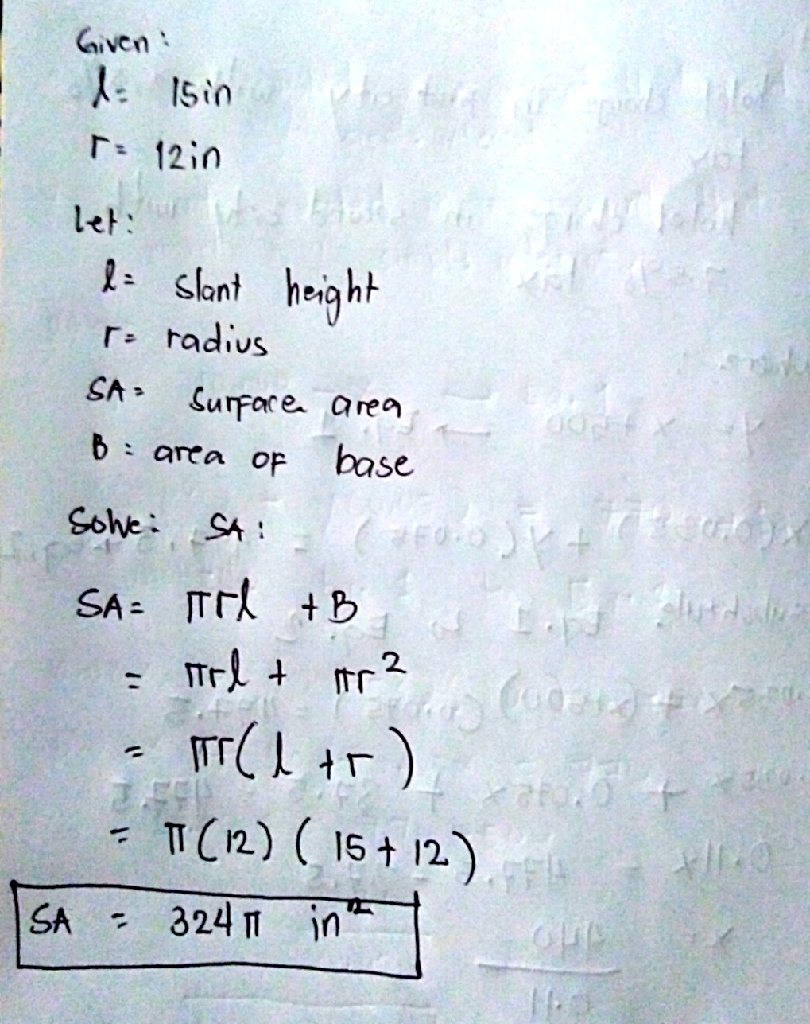 Given:
l = 15in
r = 12in
Let:
l = slant height
r = radius
SA = surface area
B = area of base
Solve: SA:
SA = πrl + B
= πrl + πr²
= πr(l + r)
= π(12)(15 + 12)
SA = 324π in²